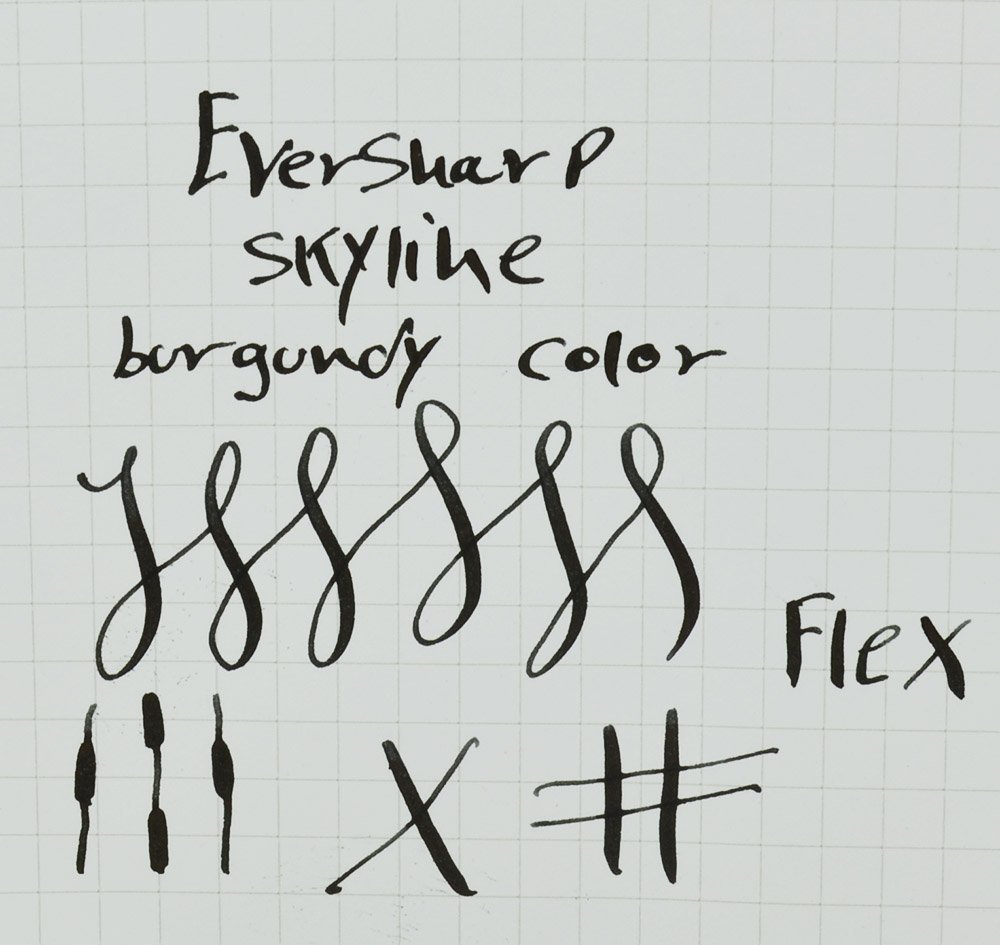 EverSharp
skyline
burgundy color
Flex
X #